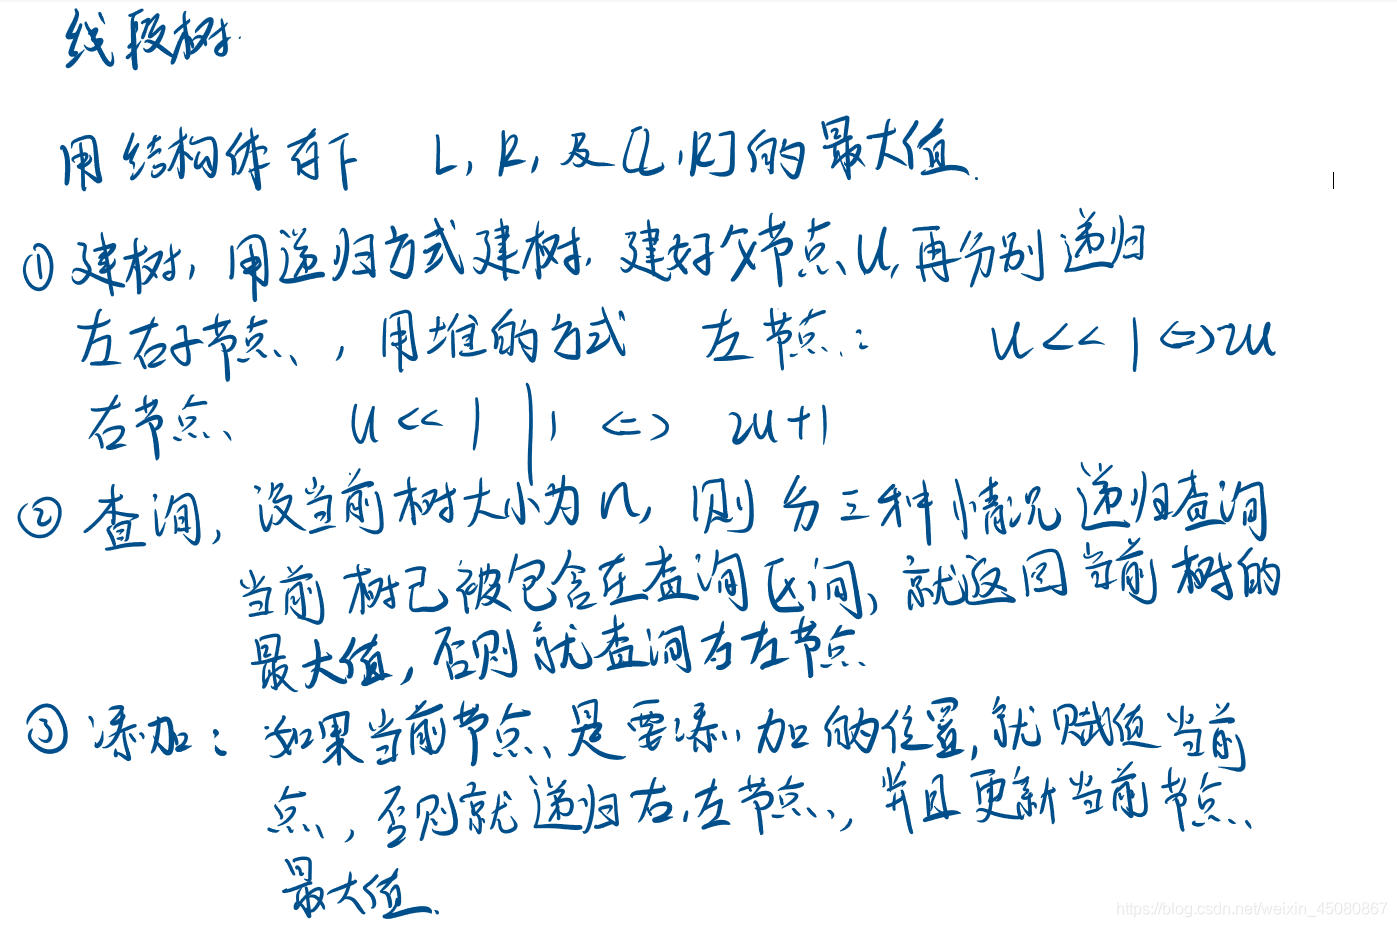 线段树
用结构体存下 L, R, 及[L,R]的最大值.
① 建树, 用递归方式建树. 建好父节点u, 再分别递归
左右子节点, 用堆的方式 左节点: u<<1 <=> 2u
右节点 u<<1|1 <=> 2u+1
② 查询, 设当前树大小为n, 则分三种情况递归查询
当前树已被包含在查询区间, 就返回当前树的
最大值, 否则就查询右左节点
③ 添加: 如果当前节点是要添加的位置, 就赋值当前
点, 否则就递归右,左节点, 并且更新当前节点
最大值.
https://blog.csdn.net/weixin_45080867